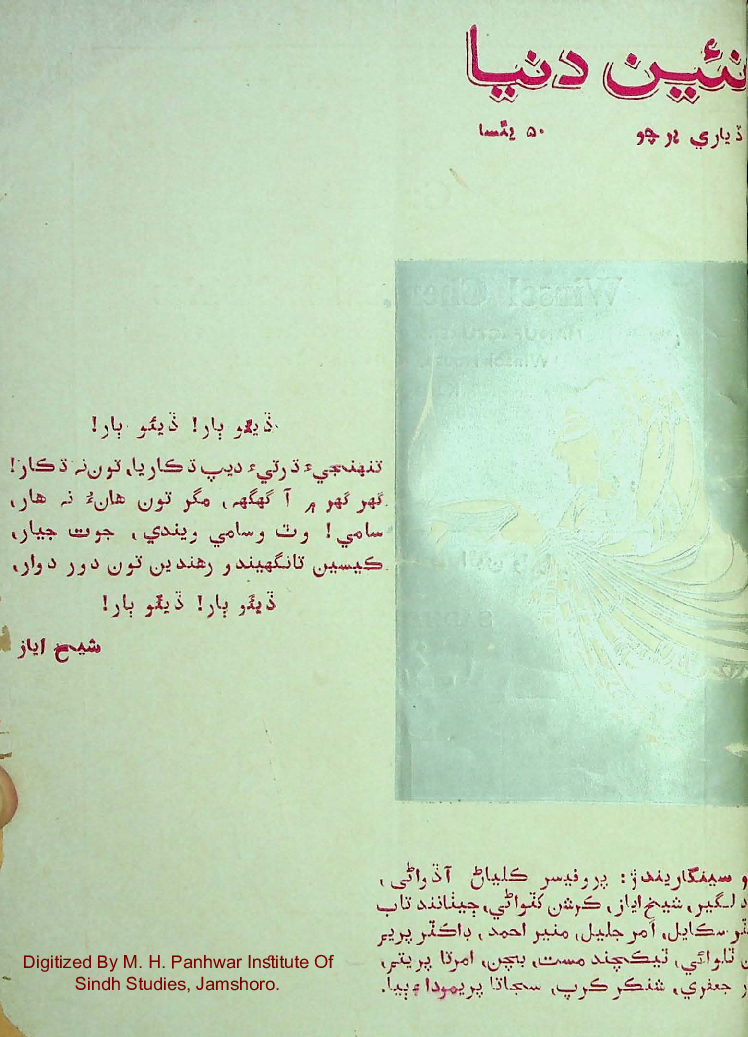 نئين دنيا
ڏياري پرچو
۵۰ پئسا
ڏيئو ٻار! ڏيئو ٻار!
تنهنجيءَ ڌرتيءَ ديپ ڌڪاريا، تون نہ ڌڪار!
گهر گهر ۾ آ گهگهہ، مگر تون هانءُ نہ هار،
سامي! وٽ وسامي ويندي، جوت جيار،
ڪيسين تانگهيندو رهندين تون دور دوار،
ڏيئو ٻار! ڏيئو ٻار!
شيخ اياز
سينگاريندڙ: پروفيسر ڪلياڻ آڏواڻي،
دلگير، شيخ اياز، ڪرشن کٽواڻي، جيٺانند تاب
سڪايل، امر جليل، منير احمد، ڊاڪٽر پريم
تلواڻي، ٽيڪچند مست، ٻچن، امرتا پريتم،
جعفري، شنڪر ڪرپ، سڃاتا پريمودا ۽ ٻيا.
Digitized By M. H. Panhwar Institute Of
Sindh Studies, Jamshoro.